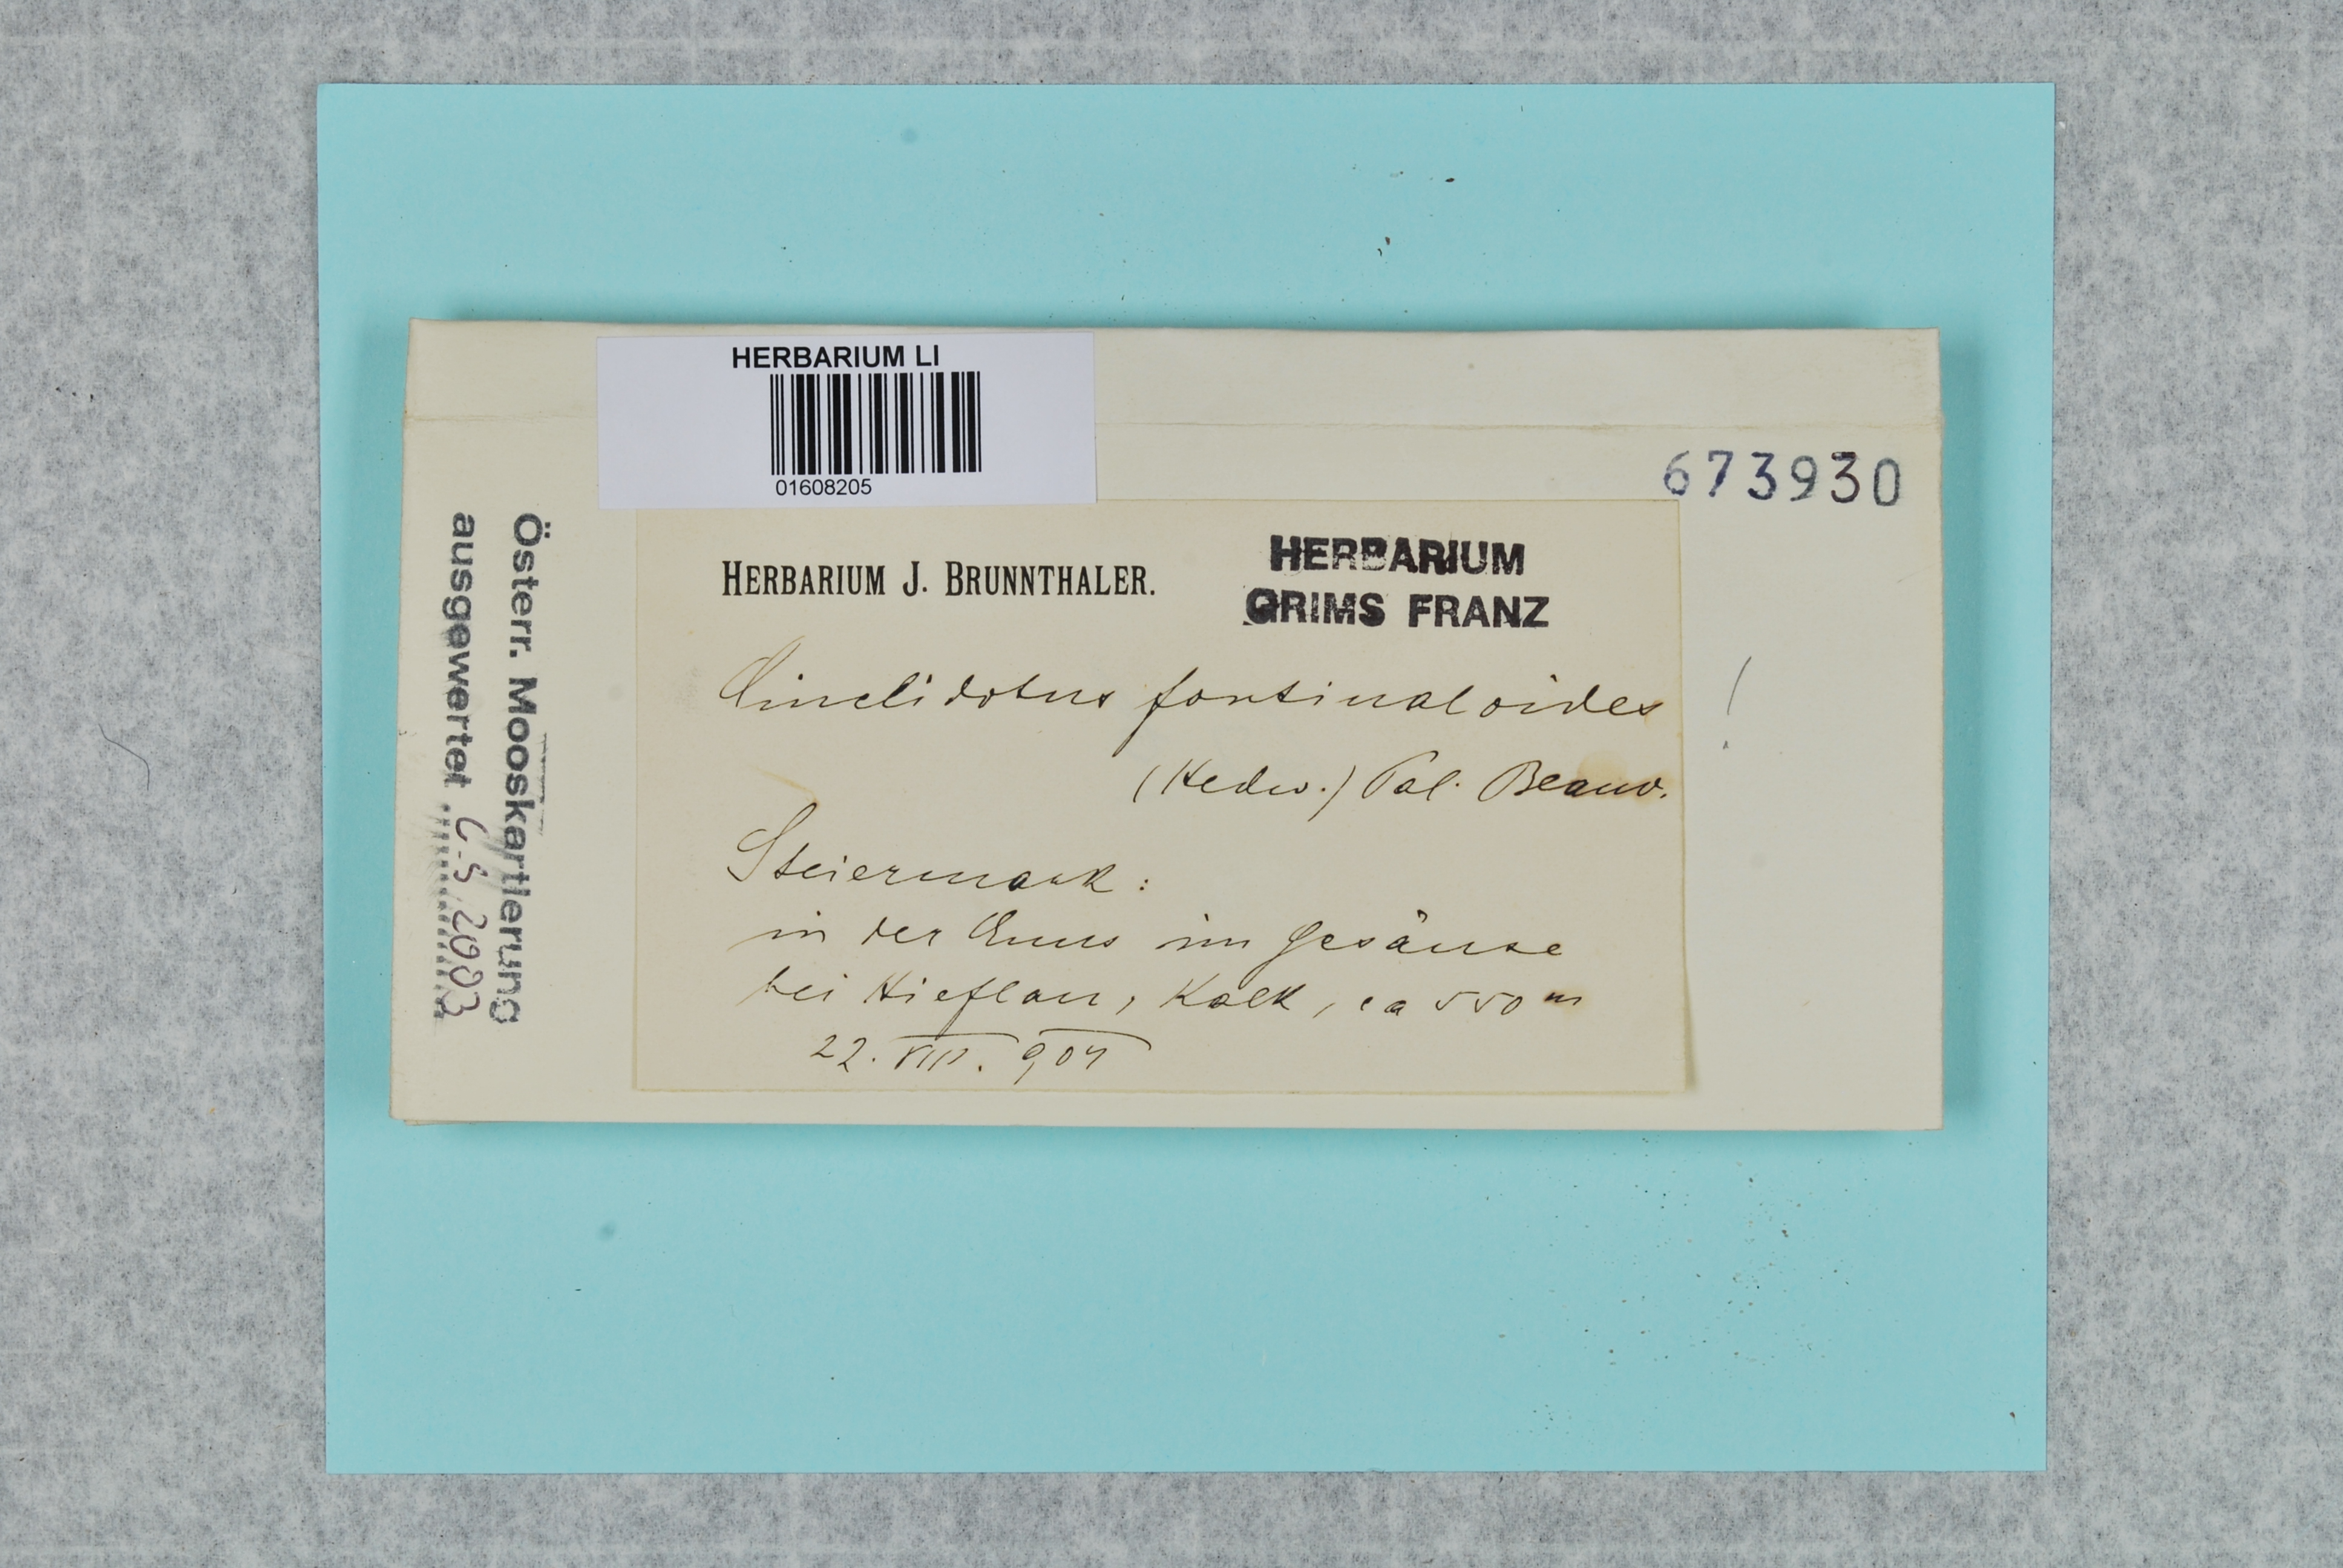 HERBARIUM LI
01608205
673930
HERBARIUM J. BRUNNTHALER.
HERBARIUM
GRIMS FRANZ
Cinclidotus fontinaloides !
(Hedw.) Pal. Beauv.
Steiermark:
in der Enns im Gesäuse
bei Hieflau, Kalk, ca 550 m
22. VIII. 904
Österr. Mooskartierung
ausgewertet C.S. 2003